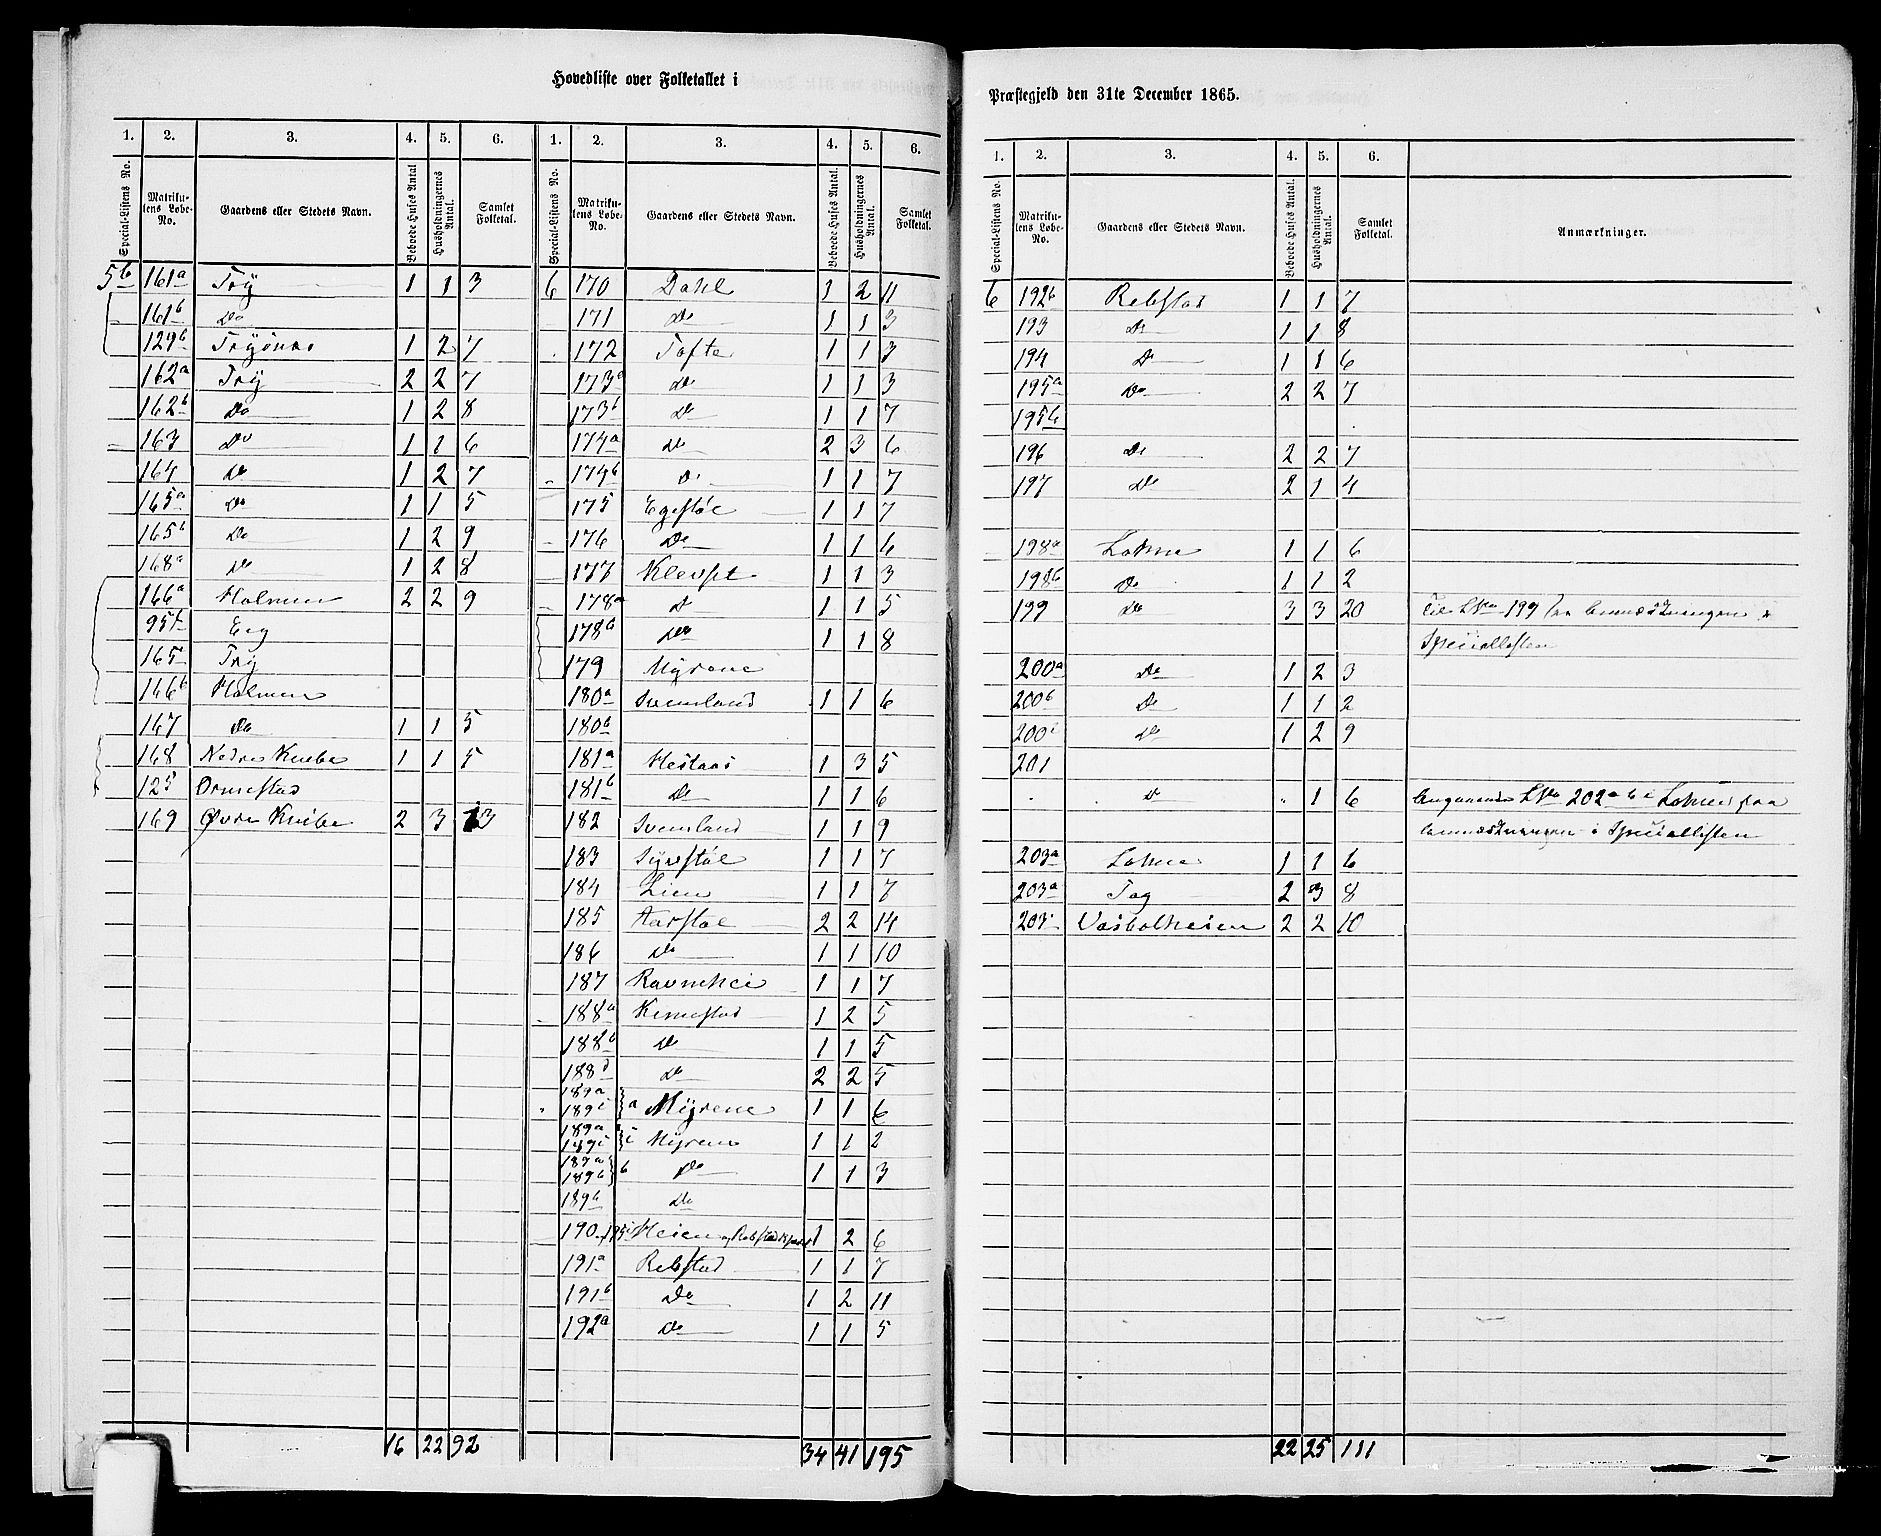 Hovedliste over Folketallet i
1. 2. 3. 4. 5. 6.
Special-Listens No. Matrikulens Løbe-No. Gaardens eller Stedets Navn. Beboede Huses Antal Husholdningernes Antal. Samlet Folketal.
5b 161a Try 1 1 3
161b Do
129b Tryönes 1 2 7
162a Try 2 2 7
162b Do 1 2 8
163 Do 1 1 6
164 Do 1 2 7
165a Do 1 1 5
165b Do 1 2 9
168a Do 1 2 8
166a Holmen 2 2 9
95 Eeg
165 Try
166b Holmen
167 Do 1 1 5
168 Nedre Kvibe 1 1 5
125 Ormestad
169 Øvre Kvibe 2 3 13
16 22 92
1. 2. 3. 4. 5. 6.
Special-Listens No. Matrikulens Løbe-No. Gaardens eller Stedets Navn. Beboede Huses Antal. Husholdningernes Antal. Samlet Folketal.
6 170 Dahl 1 2 11
171 Do 1 1 3
172 Tofte 1 1 3
173a Do 1 1 3
173b Do 1 1 7
174a Do 2 3 6
174b Do 1 1 7
175 Egestøl 1 1 7
176 Do 1 1 6
177 Klevset 1 1 3
178a Do 1 1 5
178b Do 1 1 8
179 Myrene
180a Svemland 1 1 6
180b
181a Hestaas 1 3 5
181b Do 1 1 6
182 Svemland 1 1 9
183 Syrstøl 1 1 7
184 Lien 1 1 7
185 Aarstøl 2 2 14
186 Do 1 1 10
187 Ravnehei 1 1 7
188a Kimestad 1 2 5
188b Do 1 1 5
188d Do 2 2 5
189a
189c } a Myrene 1 1 6
189a
189c } c Myrene 1 1 2
189a
189b } b Do 1 1 3
189b Do
190 Heien og 1 2 6
191a Rebstad 1 1 7
191b Do 1 2 11
192a Do 1 1 5
34 41 195
Præstegjeld den 31te December 1865.
1. 2. 3. 4. 5. 6.
Special-Listens No. Matrikulens Løbe-No. Gaardens eller Stedets Navn. Beboede Huses Antal. Husholdningernes Antal. Samlet Folketal. Anmærkninger.
6 192b Rebstad 1 1 7
193 Do 1 1 8
194 Do 1 1 6
195a Do 2 2 7
195b
196 Do 2 2 7
197 Do 2 1 4
198a Lohne 1 1 6
198b Do 1 1 2
199 Do 3 3 20 Til LNo 199 see Anmærkningen i
Speciallisten
200a Do 1 2 3
200b Do 1 1 2
200c Do 1 2 9
201
Do " 1 6 Angaaende LNo 202a b c Lohne see
Anmærkningen i Speciallisten
203a Lohne 1 1 6
203a Tag 2 3 8
203 Vasbotheien 2 2 10
22 25 111